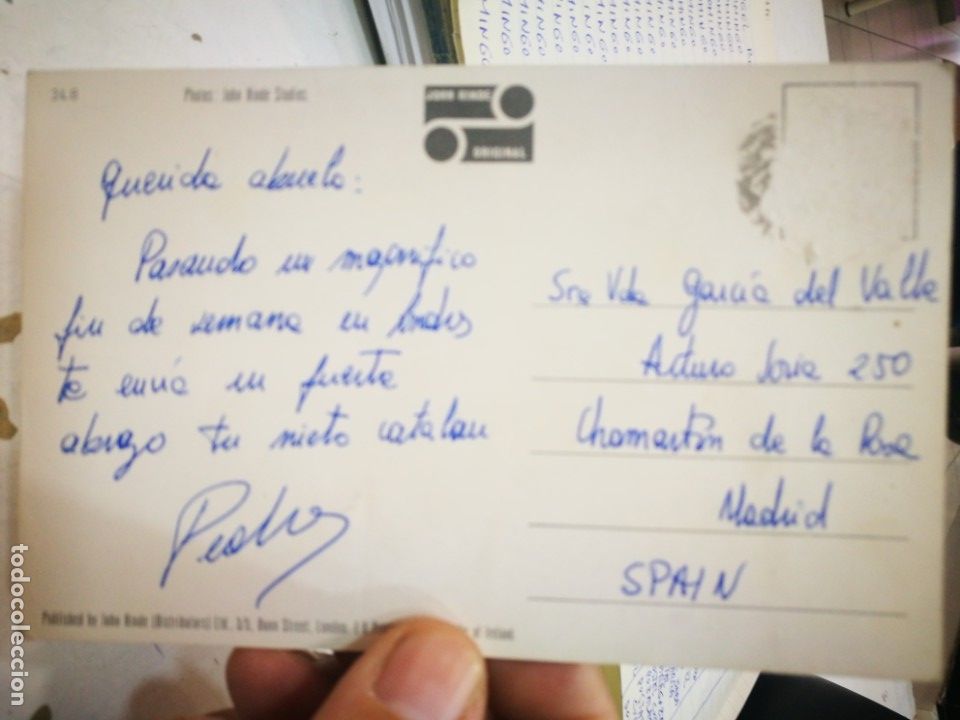 24.8
Photos: John Hinde Studios.
JOHN HINDE
ORIGINAL
Querida abuela:
Pasando un magnífico
fin de semana en Londres
te envía un fuerte
abrazo tu nieto catalan
Pedro
Sra Vda García del Valle
Arturo Soria 250
Chamartín de la Rosa
Madrid
SPAIN
Published by John Hinde (Distributors) Ltd., Street, London, of Ireland
MINGO
MINGO
MINGO
MINGO
MINGO
todocoleccion